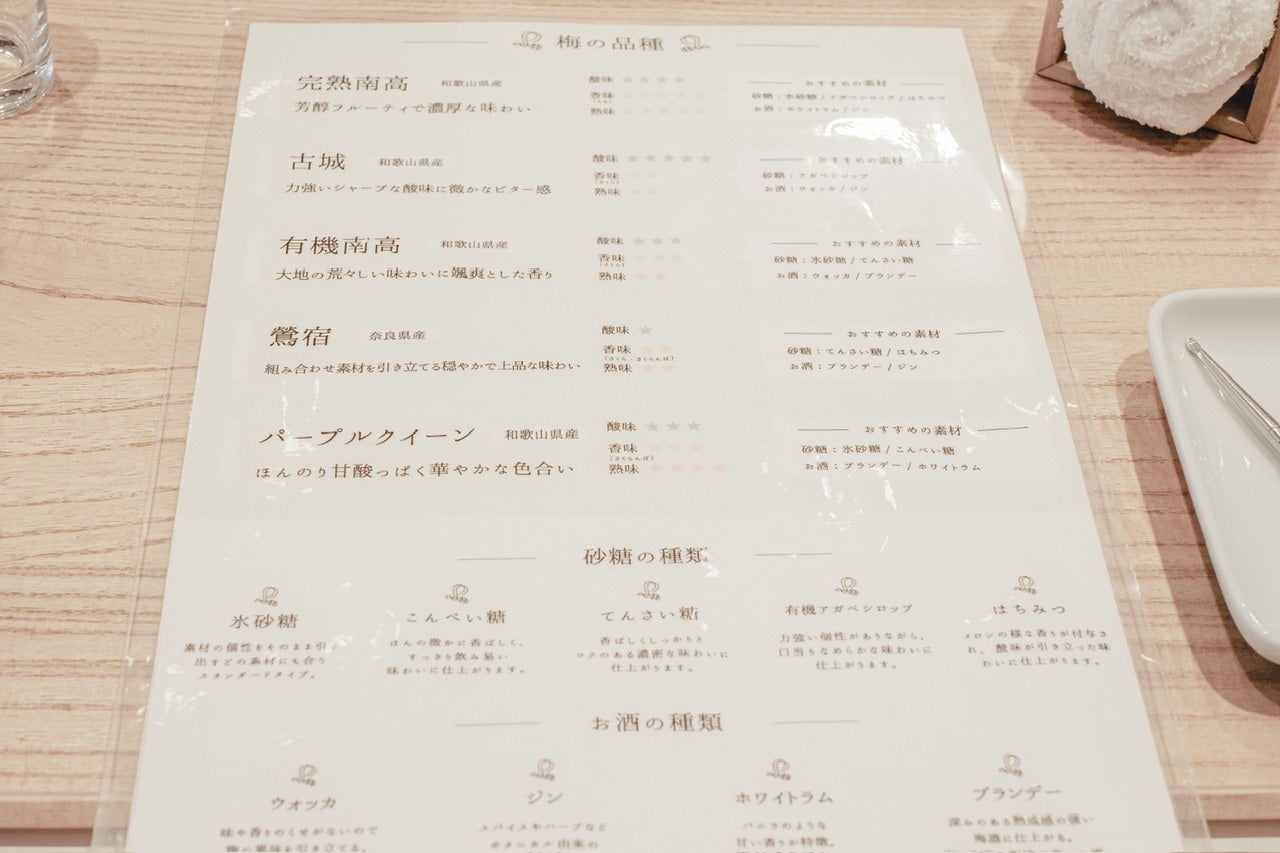 梅の品種
完熟南高 和歌山県産
芳醇フルーティで濃厚な味わい
酸味 ★★★★
香味 ★★★★★
(もも)
熟味 ★★★★★
おすすめの素材
砂糖：氷砂糖 / アガベシロップ / はちみつ
お酒：ホワイトラム / ジン
古城 和歌山県産
力強いシャープな酸味に微かなビター感
酸味 ★★★★★
香味 ★★
(さくら)
熟味 ★★
おすすめの素材
砂糖：アガベシロップ
お酒：ウォッカ / ジン
有機南高 和歌山県産
大地の荒々しい味わいに颯爽とした香り
酸味 ★★★
香味 ★★★
(さくら)
熟味 ★★
おすすめの素材
砂糖：氷砂糖 / てんさい糖
お酒：ウォッカ / ブランデー
鶯宿 奈良県産
組み合わせ素材を引き立てる穏やかで上品な味わい
酸味 ★
香味 ★★
(さくら・さくらんぼ)
熟味 ★★
おすすめの素材
砂糖：てんさい糖 / はちみつ
お酒：ブランデー / ジン
パープルクイーン 和歌山県産
ほんのり甘酸っぱく華やかな色合い
酸味 ★★★
香味 ★★★
(さくらんぼ)
熟味 ★★★★
おすすめの素材
砂糖：氷砂糖 / こんぺい糖
お酒：ブランデー / ホワイトラム
砂糖の種類
氷砂糖
素材の個性をそのまま引き
出すどの素材にも合う
スタンダードタイプ。
こんぺい糖
ほんの微かに香ばしく、
すっきり飲み易い
味わいに仕上がります。
てんさい糖
香ばしくしっかりと
コクのある濃密な味わいに
仕上がります。
有機アガベシロップ
力強い個性がありながら、
口当りなめらかな味わいに
仕上がります。
はちみつ
メロンの様な香りが付与さ
れ、酸味が引き立った味
わいに仕上がります。
お酒の種類
ウォッカ
味や香りのくせがないので
梅の風味を引き立てる。
ジン
スパイスやハーブなど
ボタニカル由来の
ホワイトラム
バニラのような
甘い香りが特徴。
ブランデー
深みのある熟成感の強い
梅酒に仕上がる。